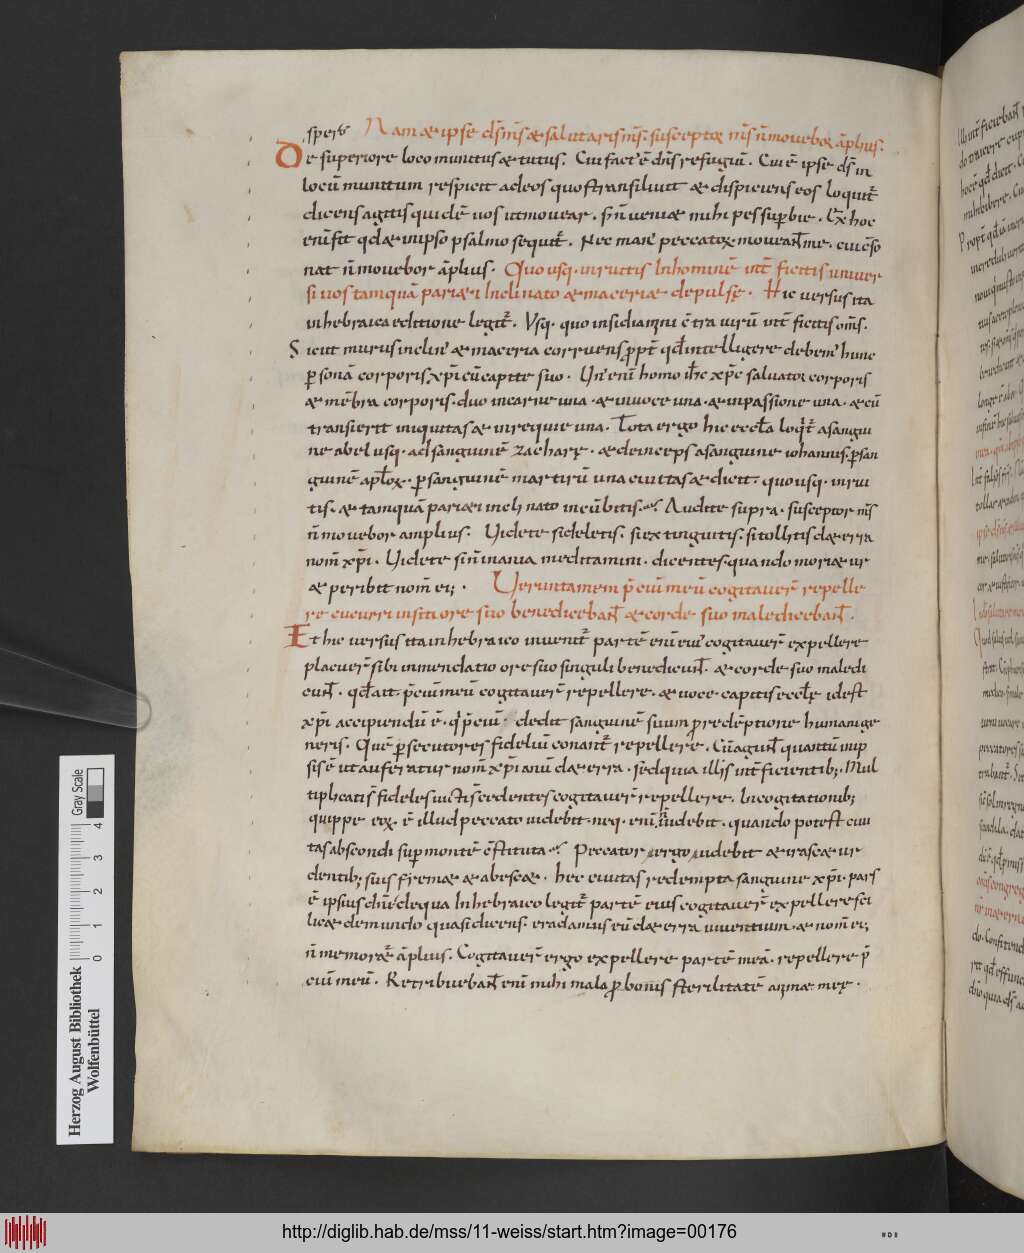 speres Nam & ipse ds̄ ms̄ & salutaris ms̄. susceptor ms̄ n̄ movebor āplius.
De superiore loco munitus & tutus. Cui fact' ē dn̄s refugiū. Cui ē ipse ds̄ in
locū munitum respicit ad eos quos transiluit & dispiciens eos loquit̄
dicens agitis quidē vos ut movear. s; n̄ veni& mihi pes superbie. Ex hoc
enī fit qd & in ipso psalmo sequit̄. Nec man' peccator moveant me. cui cōso
nat n̄ movebor āplius. Quo usq. inruitis In hominē int̄ficitis univer
si vos tamquā pari&i Inclinato & maceriae depulse. Hic versus ita
in hebraica editione legit̄. Usq. quo insidiamini c̄tra virū int̄ficitis om̄s.
Sicut murus inclin' & maceria corruens p̄pt̄ qd intelligere deben' hunc
p̄sonā corporis xp̄i cū capite suo. Un' enī homo ih̄c xp̄c salvator corporis
& mēbra corporis. duo in carne una. & in voce una. & in passione una. & cū
transierit iniquitas & in requie una. Tota ergo hic eccl̄a loq̄t̄ a sangui
ne abel usq. ad sanguinē zacharę. & deinceps a sanguine iohannis. p̄ san
guinē apl̄ox. p̄ sanguinē martirū una civitas & dicit. quo usq. inrui
tis. & tamquā pari&i inclinato incūbitis. Audite supra. susceptor ms̄
n̄ movebor amplius. Videte si deletis. si extinguitis. si tollitis de terra
nom̄ xp̄i. Videte si n̄ inania meditamini. dicentes. quando mori&ur
& peribit nom̄ ei;. Veruntamem p̄ciū meū cogitaver̄ repelle
re cucurri in siti ore suo benedicebant & corde suo maledicebant.
Et hic versus ita in hebraico invenit̄ partē enī eius cogitaver̄ expellere
placuer̄ sibi in mendatio ore suo singuli benedicunt. & corde suo maledi
cunt. qd ait. p̄ciū meū cogitaver̄ repellere. & voce capitis ecclę id est
xp̄i accipiendū ē. q' p̄ciū. dedit sanguinē suum p̄ redēptione humani ge
neris. Quē p̄secutores fideliū conant̄ repellere. Cū agunt quantū in ip
sis ē ut auferatur nom̄ xp̄i cuius de terra. sed quia illis int̄ficientib; Mul
tiplicatis fideles victi cedentes cogitaver̄ repellere. In cogitationib;
quippe eox. ē illud peccato videbit. neq. enī n̄ videbit. quando potest civi
tas abscondi sup̄ montē c̄stituta. Peccator ergo videbit & irasc&ur
dentib; suis frem& & abesc&. hec civitas redempta sanguine xp̄i. pars
ē ipsius de qua In hebraico legit̄ partē eius cogitaver̄ expellere sci
lic& de mundo quasi dicens. eradamus eū de terra viventium. & nom̄ ei;
n̄ memor&̄ āplius. Cogitaver̄ ergo expellere partē meā. repellere p̄
ciū meū. Retribuebant enī mihi mala p̄ bonis sterilitatē animae meę.
Herzog August Bibliothek
Wolfenbüttel
Gray Scale
0 1 2 3 4
http://diglib.hab.de/mss/11-weiss/start.htm?image=00176